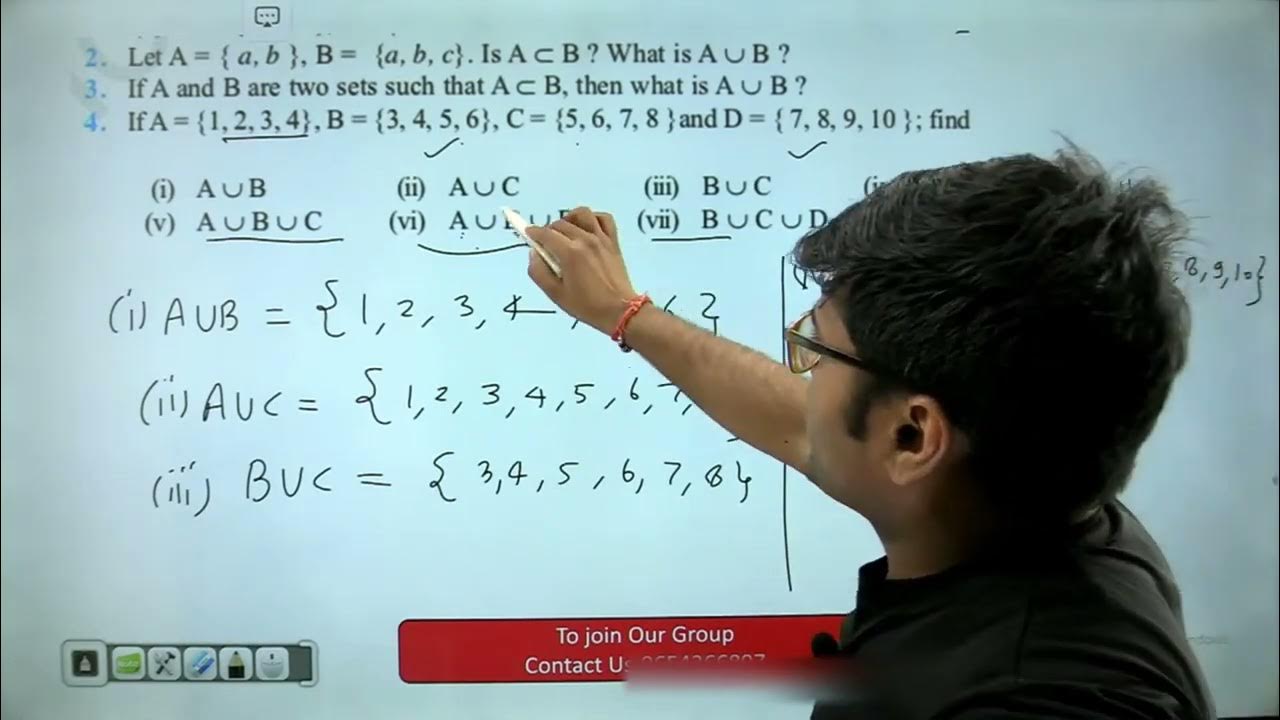 2. Let A = { a, b }, B = {a, b, c}. Is A ⊂ B ? What is A ∪ B ?
3. If A and B are two sets such that A ⊂ B, then what is A ∪ B ?
4. If A = {1, 2, 3, 4}, B = {3, 4, 5, 6}, C = {5, 6, 7, 8 }and D = { 7, 8, 9, 10 }; find
(i) A ∪ B (ii) A ∪ C (iii) B ∪ C
(v) A ∪ B ∪ C (vi) A ∪ ∪ (vii) B ∪ C ∪ D
8, 9, 10}
(i) A∪B = {1, 2, 3, 4, 6}
(ii) A∪C = {1, 2, 3, 4, 5, 6, 7,
(iii) B∪C = {3, 4, 5, 6, 7, 8}
To join Our Group
Contact Us
Auto